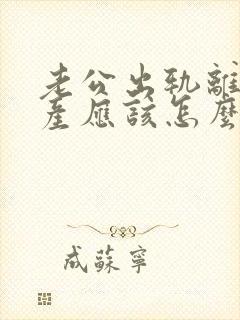 老公出轨離
產應該怎麼
成蘇寧